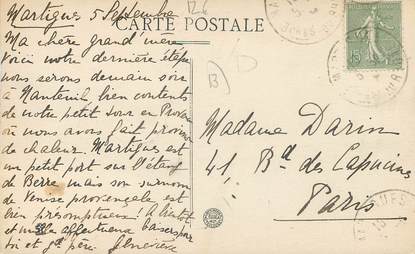 Martigues 5 Septembre
126
CARTE POSTALE
Ma chère grand mère
Voici notre dernière étape
nous serons demain soir
à Nanteuil bien contents
de notre petit tour en Provence
où nous avons fait provision
de chaleur. Martigues est
un petit port sur l'étang
de Berre mais son surnom
de Venise provençale est
bien présomptueux! A bientôt
et mille affectueux baisers pour
toi et gd père. Geneviève
B
D
15
Madame Darin
41, Bd des Capucines
Paris